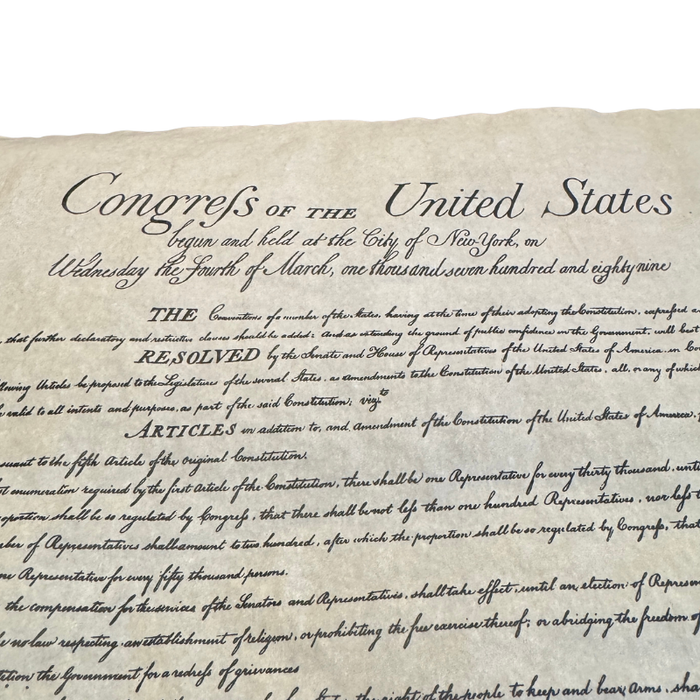 Congreſs OF THE United States
begun and held at the City of New-York, on
Wednesday the Fourth of March, one thousand seven hundred and eighty nine
THE Conventions of a number of the States, having at the time of their adopting the Constitution, expressed a
, that further declaratory and restrictive clauses should be added: And as extending the ground of public confidence in the Government, will best
RESOLVED by the Senate and House of Representatives of the United States of America, in Co
llowing Articles be proposed to the Legislatures of the several States, as amendments to the Constitution of the United States, all, or any of which
e valid to all intents and purposes, as part of the said Constitution; vizt.
ARTICLES in addition to, and amendment of the Constitution of the United States of America,
suant to the fifth Article of the original Constitution.
st enumeration required by the first Article of the Constitution, there shall be one Representative for every thirty thousand, unti
oportion shall be so regulated by Congreſs, that there shall be not leſs than one hundred Representatives, nor leſs t
ber of Representatives shall amount to two hundred, after which the proportion shall be so regulated by Congreſs, that
ne Representative for every fifty thousand persons.
the compensation for the services of the Senators and Representatives, shall take effect, until an election of Represen
e no law respecting an establishment of religion, or prohibiting the free exercise thereof; or abridging the freedom of
tition the Government for a redreſs of grievances
the right of the people to keep and bear Arms, sha